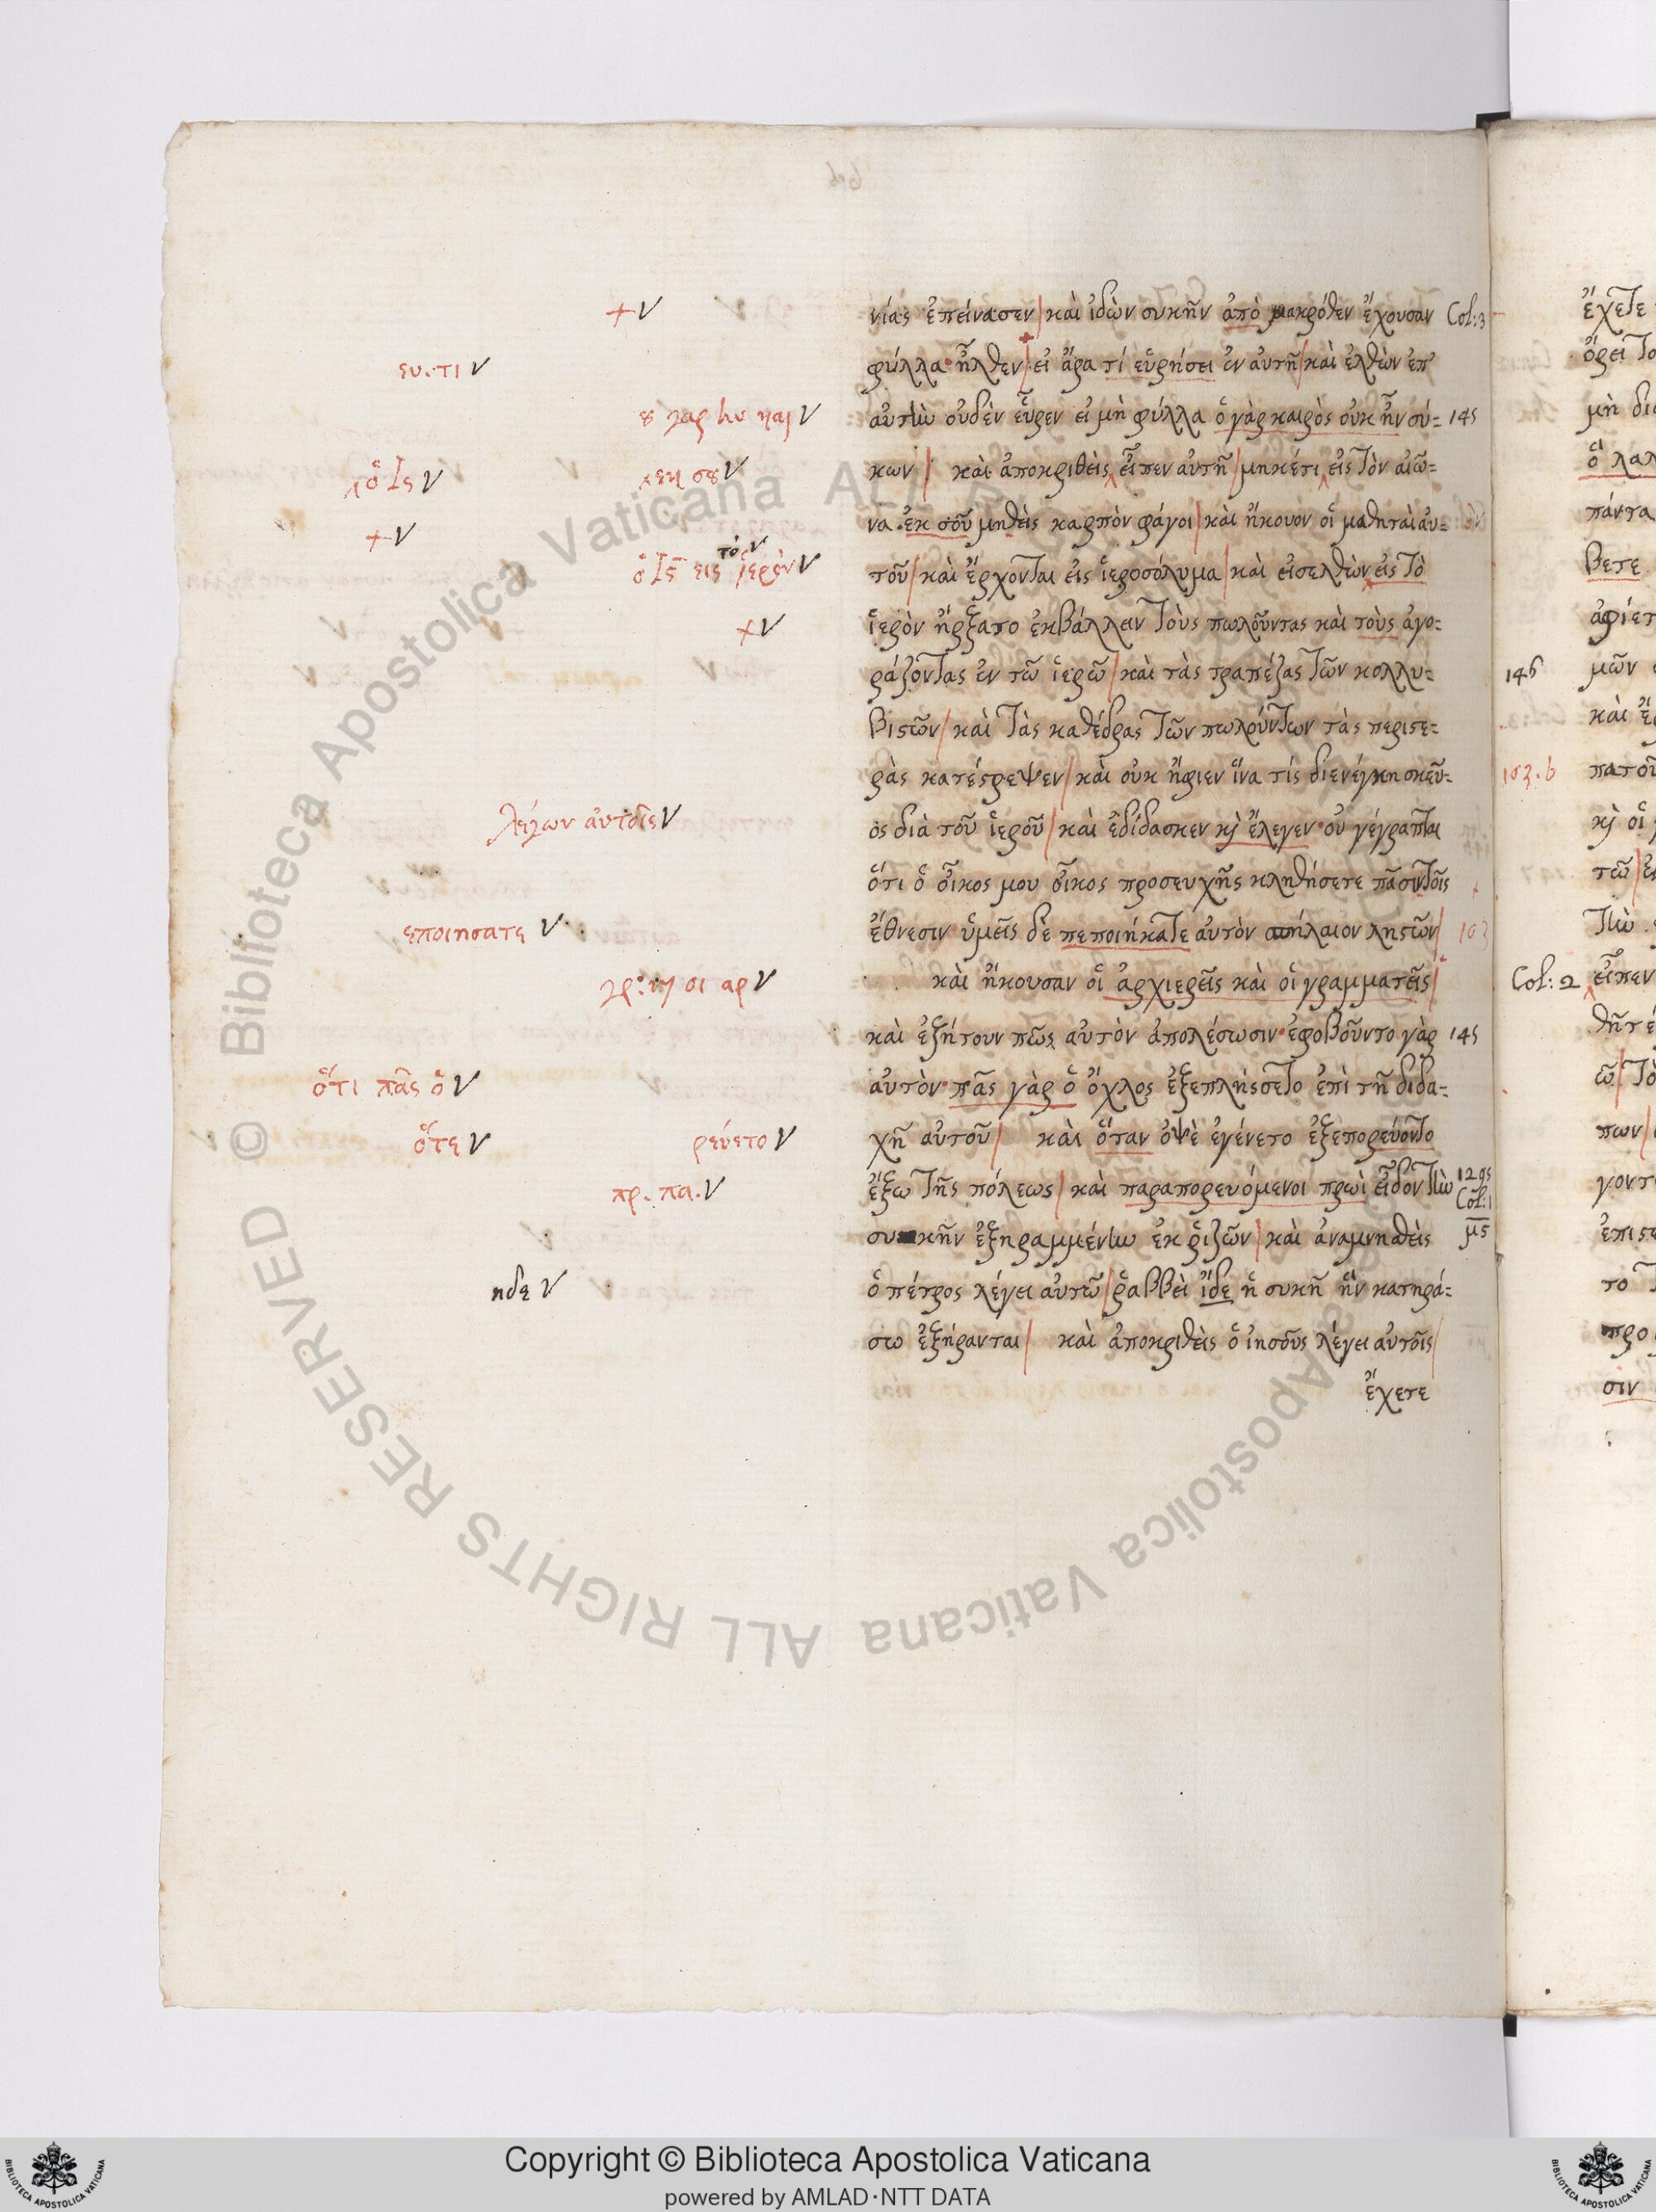 +ν νίας ἐπείνασεν/ καὶ ἰδὼν συκῆν ἀπὸ μακρόθεν ἔχουσαν Col:3
ευ.τι ν φύλλα· ἦλθεν/ εἰ ἄρα τί εὑρήσει ἐν αὐτῇ/ καὶ ἐλθὼν ἐπ'
αὐτὴν οὐδὲν εὗρεν εἰ μὴ φύλλα ὁ γὰρ καιρὸς οὐκ ἦν σύ= 145
κων/ καὶ ἀποκριθεὶς εἶπεν αὐτῇ/ μηκέτι εἰς τὸν αἰῶ=
+ν να ἐκ σοῦ μηθεὶς καρπὸν φάγοι/ καὶ ἤκουον οἱ μαθηταὶ αυ=
τὸ ν
ὁ ις εις ἱερὸν ν τοῦ/ καὶ ἔρχονται εἰς ἱεροσόλυμα/ καὶ εἰσελθὼν εἰς τὸ
+ν ἱερὸν ἤρξατο ἐκβάλλειν τοὺς πωλοῦντας καὶ τοὺς ἀγο=
ράζοντας ἐν τῶ ἱερῶ/ καὶ τὰς τραπέζας τῶν κολλυ=
βιστῶν/ καὶ τὰς καθέδρας τῶν πωλούντων τὰς περιστε=
ρὰς κατέστρεψεν/ καὶ οὐκ ἤφιεν ἵνα τίς διενέγκη σκεῦ=
λέγων ἀυτοῖς ν ος διὰ τοῦ ἱεροῦ/ καὶ ἐδίδασκεν κὶ ἔλεγεν· οὐ γέγραπται
ὅτι ὁ οἶκος μου οἶκος προσευχῆς κληθήσετε πᾶσιν τοῖς
εποιησατε ν ἔθνεσιν· ὑμεῖς δὲ πεποιήκατε αὐτὸν σπήλαιον ληστῶν/ 103
καὶ ἤκουσαν οἱ ἀρχιερεῖς καὶ οἱ γραμματεῖς/
καὶ ἐζήτουν πῶς αὐτὸν ἀπολέσωσιν· ἐφοβοῦντο γὰρ 145
ὅτι πᾶς ὁ ν αὐτὸν· πᾶς γὰρ ὁ ὄχλος ἐξεπλήσσετο ἐπὶ τῇ διδα=
ὅτε ν ρεύετο ν χῇ αὐτοῦ/ καὶ ὅταν ὀψὲ ἐγένετο ἐξεπορεύοντο
πρ. πα. ν ἔξω τῆς πόλεως/ καὶ παραπορευόμενοι πρωὶ εἶδον τὴν 1295 Col:1
συκῆν ἐξηραμμένην ἐκ ῥιζῶν/ καὶ ἀναμνησθεὶς μς
ηδε ν ὁ πέτρος λέγει αὐτῶ/ ῥαββὶ ἴδε ἡ συκῆ ἣν κατηρά=
σω ἐξήρανται/ καὶ ἀποκριθεὶς ὁ ἰησοῦς λέγει αὐτοῖς/
ἔχετε
ἔχετε
μὴ
ὁ λαλ
πάντα
βετε
ἀφίετ
146 μῶν
καὶ
103.b πατοῦ
κὶ οἱ
τῶ/
τὴν
Col: 2 εἶπεν
πων/
γοντ
ἐπισ
το
προ
σιν
© Biblioteca Apostolica Vaticana ALL RIGHTS RESERVED
Copyright © Biblioteca Apostolica Vaticana
powered by AMLAD·NTT DATA
BIBLIOTECA APOSTOLICA VATICANA
BIBLIOTECA APOSTOLICA VATICANA